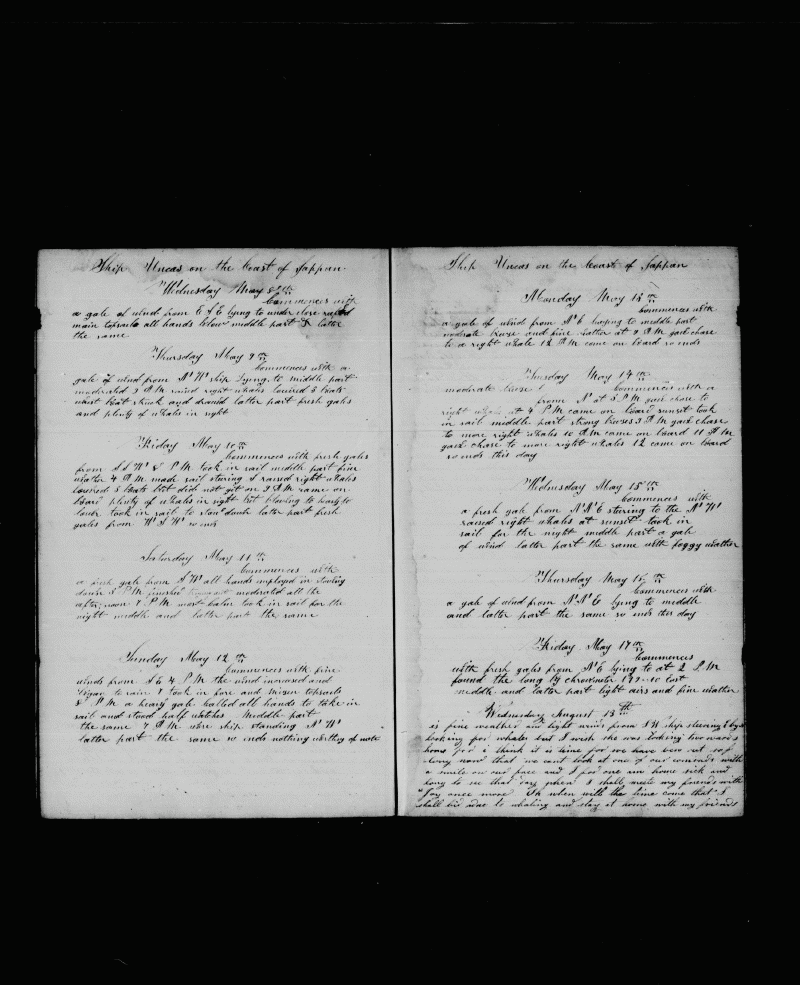 Ship Uncas on the Coast of Jappan
Wednesday May 8th
Commences with
a gale of wind from E S E lying to under close reefed
main topsails all hands below middle part & latter
the same
Thursday May 9th
Commences with a
gale of wind from N W ship lying to middle part
moderated 9 A M raised right whales lowered 3 boats
waist boat struck and drawed latter part fresh gales
and plenty of whales in sight
Friday May 10th
Commences with fresh gales
from S S W 8 P M took in sail middle part fine
weather 4 A M made sail stering S raised right whales
lowered 3 boats but did not git on 9 A M came on
board plenty of whales in sight but blowing to heavy to
lower took in sail to stou down latter part fresh
gales from W S W so ends
Saturday May 11th
Commences with
a fresh gale from S W all hands employed in stowing
down 3 P M finished moderated all the
afternoon 7 P M most calm took in sail for the
night middle and latter part the same
Sunday May 12th
Commences with fine
winds from S E 4 P M the wind increased and
began to rain 7 took in fore and mizen topsails
8 P M a heavy gale called all hands to take in
sail and stood half watches Middle part
the same 7 A M wore ship standing N W
latter part the same so ends nothing worthy of note
Ship Uncas on the Coast of Jappan
Monday May 13th
Commences with
a gale of wind from N E laying to middle part
moderate breeze and fine latter at 9 A M gave chase
to a right whale 12 A M came on board so ends
Tuesday May 14th
Commences with a
moderate breese from N at 3 P M gave chase to
right whale at 4 P M came on board sunset took
in sail middle part strong breeses 3 A M gave chase
to more right whales 10 A M came on board 11 A M
gave chase to more right whales 12 came on board
so ends this day
Wednesday May 15th
Commences with
a fresh gale from N N E stering to the N W
raised right whales at sunset took in
sail for the night middle part a gale
of wind latter part the same with foggy weather
Thursday May 16th
Commences with
a gale of wind from N N E lying to middle
and latter part the same so ends this day
Friday May 17th
Commences
with fresh gales from N E lying to at 2 P M
found the long by chronometer East
middle and latter part light airs and fine weather
Wednesday August 13th
is fine weather and light winds from S W ship steering E by S
looking for whales but I wish she was looking towards
home for i think it is time for we have been out so
long now that we cant look at one of our comrads with
a smile on our face and I for one am home sick and
long to see that day when I shall meet my friends with
Joy once more Oh when will the time come that I
shall bid adue to whaling and stay at home with my friends